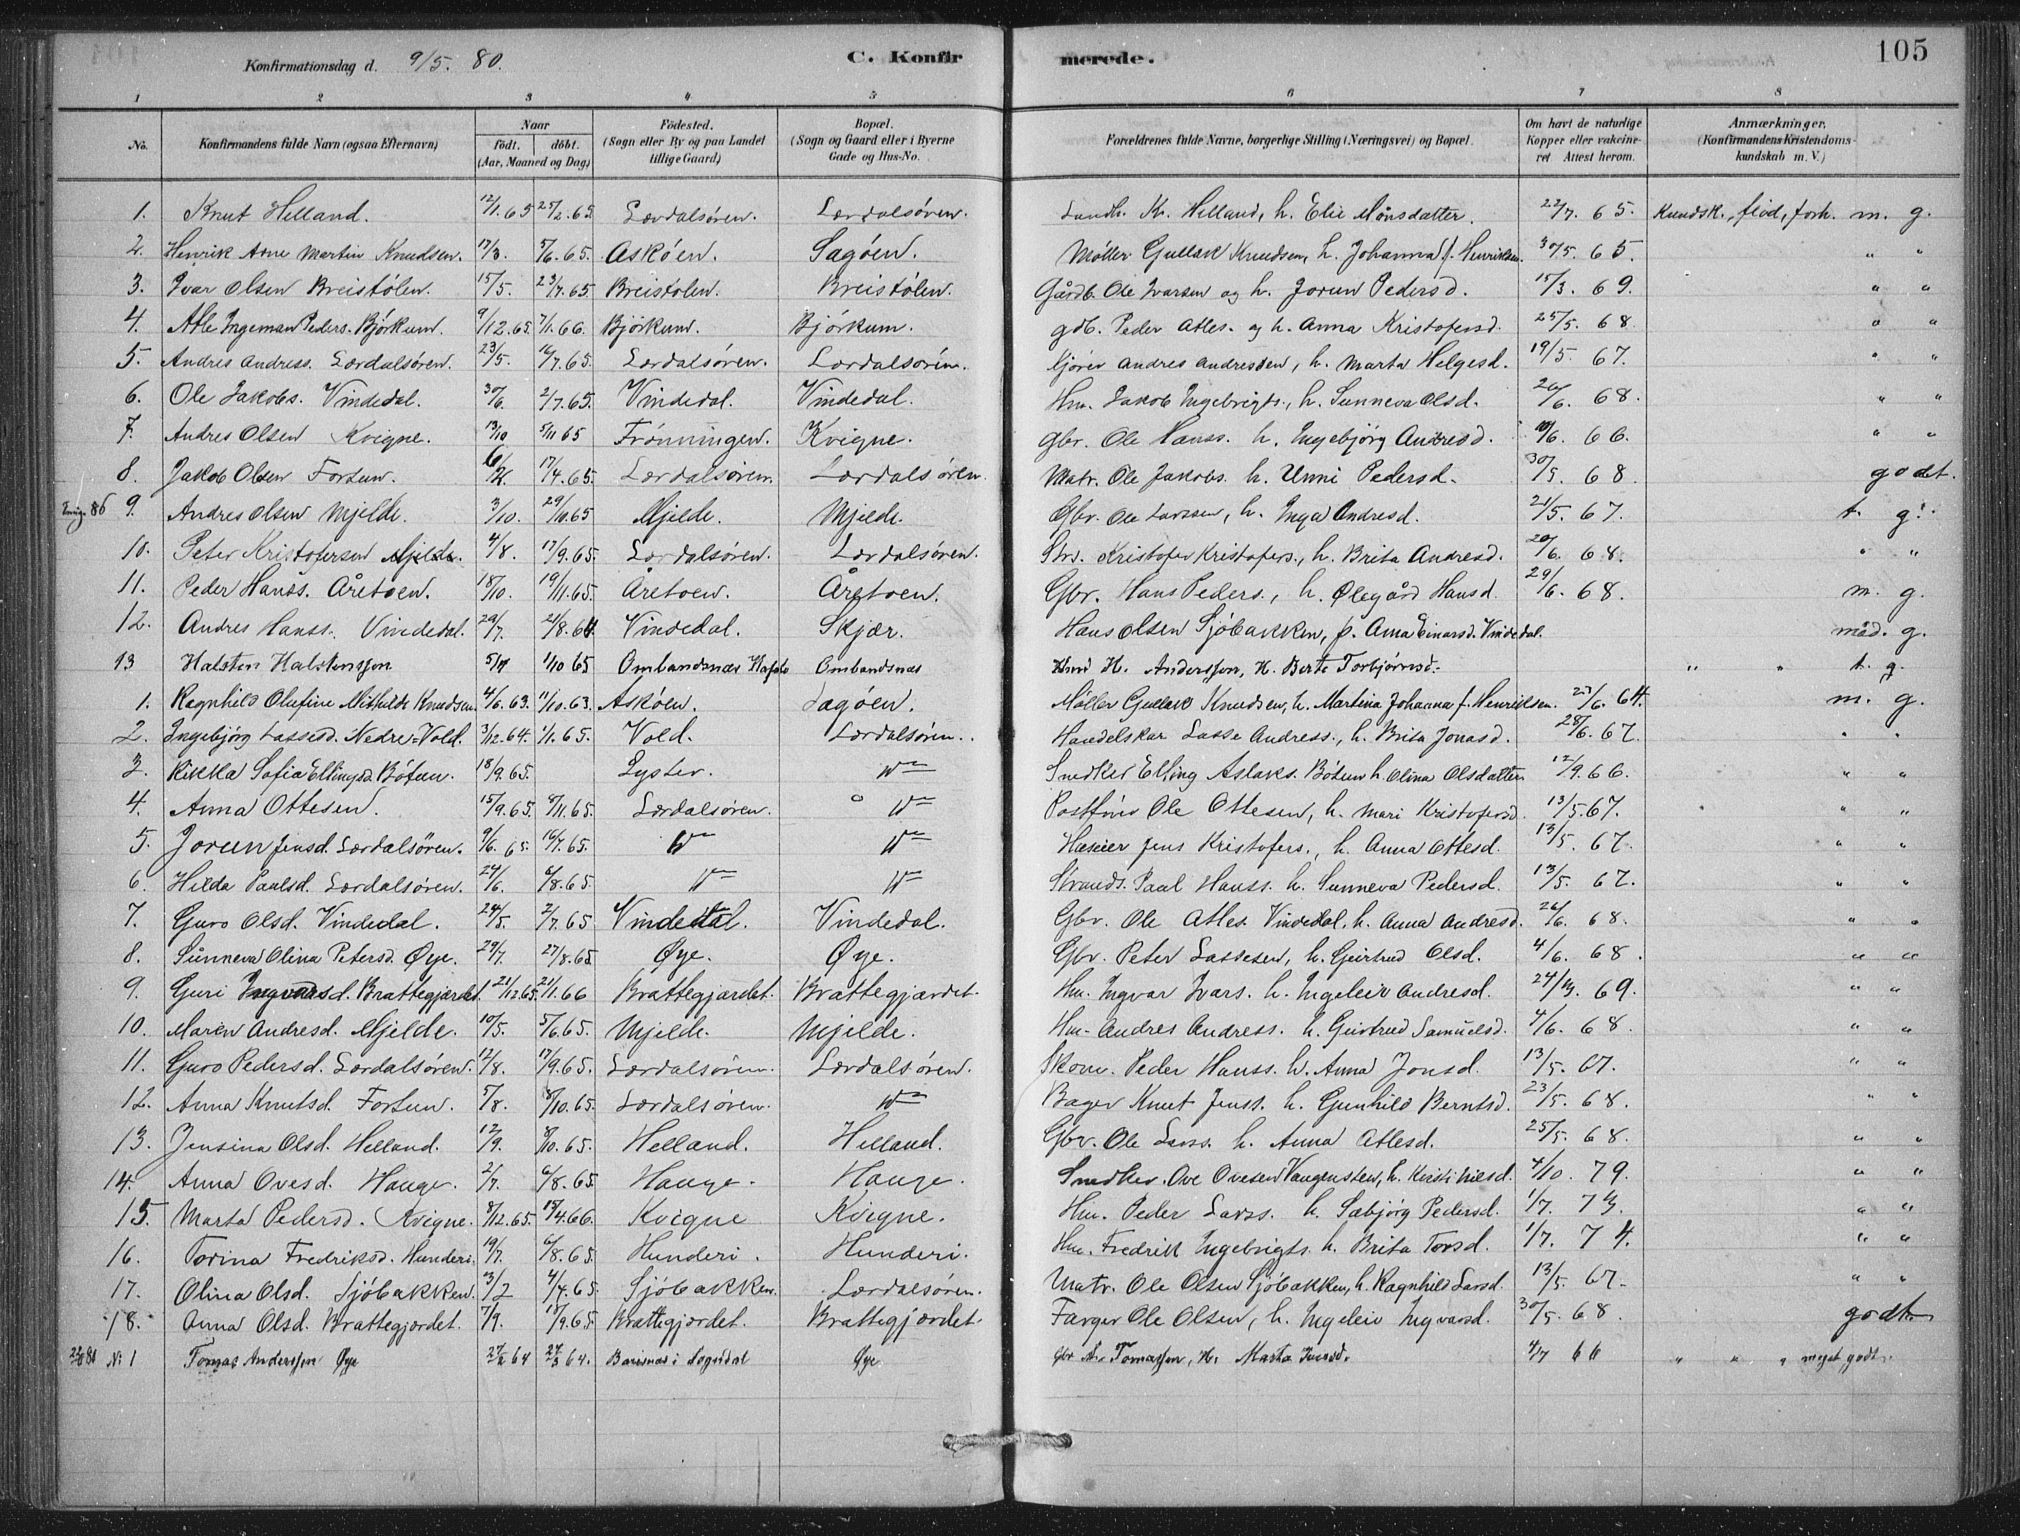 Konfirmationsdag d. 9/5. 80. C. Konfirmerede. 105
1 2 3 4 5 6 7 8
No. Konfirmandens fulde Navn (ogsaa Efternavn) Naar født. døbt. (Aar, Maaned og Dag) Fødested. (Sogn eller By og paa Landet tillige Gaard) Bopæl. (Sogn og Gaard eller i Byerne Gade og Hus-No. Forældrenes fulde Navne, borgerlige Stilling (Næringsvei) og Bopæl. Om havt de naturlige Kopper eller vakcineret. Attest herom. Anmærkninger, (Konfirmandens Kristendomskundskab m. V.)
1. Knut Helland. 12/1. 65 25/2. 65. Lærdalsøren. Lærdalsøren. Landh. K. Helland, h. Elie Månsdatter. 22/7. 65. Kundsk., flid, forh. m. g.
2. Henrik Arne Martin Knudsen. 17/3. 5/6. 65. Askøen. Sagøen. Møller Gullak Knudsen, h. Johanna f. Henriksen. 30/5. 65. " "
3. Ivar Olsen Breistølen. 15/5. 23/7. 65. Breistølen. Breistølen. Gårdb. Ole Ivarsen og h. Jorun Pedersd. 15/3. 69. " "
4. Atle Ingeman Peders. Bjørkum. 9/12. 65. 7/1. 66. Bjørkum. Bjørkum. gdb. Peder Atles. og h. Anna Kristofersd. 25/5. 68. " "
5. Andres Andress. Lærdalsøren. 23/5. 16/7. 65. Lærdalsøren. Lærdalsøren. Andres Andressen, h. Marta Helgesd. 19/5. 67. " "
6. Ole Jakobs. Vindedal. 30/6. 2/7. 65. Vindedal. Vindedal. Hm. Jakob Ingebrigts., h. Sunneva Olsd. 26/6. 68. " "
7. Andres Olsen Kvigne. 13/10 5/11 65 Frønningen. Kvigne. Gbr. Ole Hanss. h. Ingebjørg Andresd. 10/6. 66. " "
8. Jakob Olsen Fortun. 17/4. 65. Lærdalsøren. Lærdalsøren. Matr. Ole Jakobs. h. Unni Pedersd. 30/5 68. godt.
Emigr. 86 9. Andres Olsen Mjelde. 3/10. 29/10. 65 Mjelde. Mjelde. Gbr. Ole Larssen, h. Inga Andresd. 21/5. 67. t. g.
10. Peter Kristofersen Mjelde. 4/8. 17/9. 65. Lærdalsøren. Lærdalsøren. Str. Kristofer Kristofers., h. Brita Andresd. 20/6. 68. " "
11. Peder Hanss. Åretoen. 18/10. 19/11. 65. Åretoen. Åretoen. Gbr. Hans Peders., h. Ølegård Hansd. 29/6. 68. m. g.
12. Andres Hanss. Vindedal. 29/7. 21/8. 64 Vindedal. Skjær. Hans Olsen Sjøbakken, p. Anna Einarsd. Vindedal. måd. g.
13 Halsten Halstensson 5/7 1/10 65 Ombandsnæs Hafslo Ombandsnæs H. Anderssen, H. Berte Torbjørnsd. " " t. g.
1. Ragnhild Olufine Mithilde Knudsen 4/6. 63. 11/10. 63. Askøen. Sagøen. Møller Gullak Knudsen, h. Martina Johanna f. Henriksen. 23/6. 64. m. g.
2. Ingebjørg Lassesd. Nedre-Vold. 3/12. 64. 1/1. 65. Vold. Lærdalsøren. Handelskar Lasse Andress., h. Brita Jonasd. 28/6. 67. " "
3. Rikka Sofia Ellingsd. Bøtun. 18/9. 65. Lyster. Do Snedker Elling Aslaks. Bøtun h. Olina Olsdatter 12/9. 66. " "
4. Anna Ottesen. 15/9. 65. 9/11. 65. Lærdalsøren. Do Postfører Ole Ottesen, h. Mari Kristofersd. 13/5. 67. " "
5. Jorun Jensd. Lærdalsøren. 9/6. 65. 16/7. 65. Do Do Huseier Jens Kristofers., h. Anna Ottesd. 13/5. 67. " "
6. Hilda Paulsd. Lærdalsøren. 24/6. 6/8. 65. Do Do Strands. Paul Hanss. h. Sunneva Pedersd. 13/5. 67. " "
7. Guro Olsd. Vindedal. 24/5. 2/7. 65 Vindedal. Vindedal. Gbr. Ole Atles. Vindedal, h. Anna Andresd. 26/6. 68. " "
8. Sunneva Olina Petersd. Øye. 29/7. 27/8. 65 Øye. Øye. Gbr. Peter Lassesen, h. Geirtrud Olsd. 4/6. 68. " "
9. Guri Ingvarsd. Brattegjærdet 21/12. 65. 21/1. 66 Brattegjærdet. Brattegjærdet. Hm. Ingvar Ivars. h. Ingeleiv Andresd. 24/10. 69. " "
10. Maren Andresd. Mjelde. 10/5. 5/6. 65. Mjelde. Mjelde. Hm. Andres Andress. h. Geirtrud Samuelsd. 4/6. 68. " "
11. Guro Pedersd. Lærdalsøren. 12/8. 17/9. 65. Lærdalsøren. Lærdalsøren. Skom. Peder Hanss. h. Anna Jonsd. 13/5. 67. " "
12. Anna Knutsd. Fortun. 5/8. 8/10. 65. Lærdalsøren. Do Bager Knut Jenss. h. Gunhild Berntsd. 23/5. 68. " "
13. Jensina Olsd. Helland. 12/9. 8/10. 65. Helland. Helland. Gbr. Ole Lars. h. Anna Atlesd. 25/5. 68. " "
14. Anna Ovesd. Hauge. 2/7. 6/8. 65. Hauge. Hauge. Snedker. Ove Ovesen Vangensteen, h. Kristi Nilsd. 4/10. 79. " "
15. Marta Pedersd. Kvigne. 8/12. 65. 15/4. 66. Kvigne Kvigne. Hm. Peder Larss. h. Sæbjørg Pedersd. 1/7. 73. " "
16. Torina Fredriksd. Hunderi. 19/7. 6/8. 65. Hunderi. Hunderi. Hm. Fredrik Ingebrigts. h. Brita Torsd. 1/7. 74. " "
17. Olina Olsd. Sjøbakken. 13/2 4/4. 65. Sjøbakken. Lærdalsøren. Matr. Ole Olsen Sjøbakken, h. Ragnhild Larsd. 13/5. 67. " "
18. Anna Olsd. Brattegjærdet. 7/9. 18/9. 65. Brattegjordet. Brattegjærdet. Farger Ole Olsen, h. Ingeleiv Ingvarsd. 30/5. 68. godt.
No 1 Tomas Anderssen Øye 27/2 64 27/3 64. Barsnæs i Sogndal Øye. Gbr A. Tomassen, H. Marta Jensd. 4/7 66 " " " meget godt.